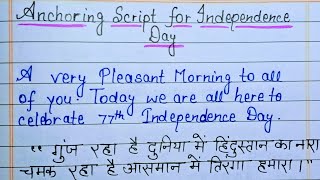 Anchoring Script for Independence
Day
A very Pleasant Morning to all
of you. Today we are all here to
celebrate 77th Independence Day.
“ गुंज रहा है दुनिया में हिंदुस्तान का नारा
चमक रहा है आसमान में तिरंगा हमारा।"